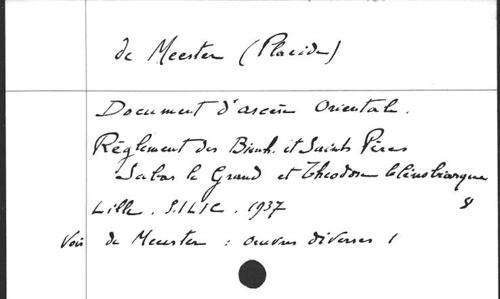 de Meester (Placide)
Document d'ascèse Orientale.
Règlement des Bienh. et Saints Pères
Sabas le Grand et Théodose le Cénobiarque
Lille. S.I.L.I.C. 1937
Voir de Meester : oeuvres diverses 1